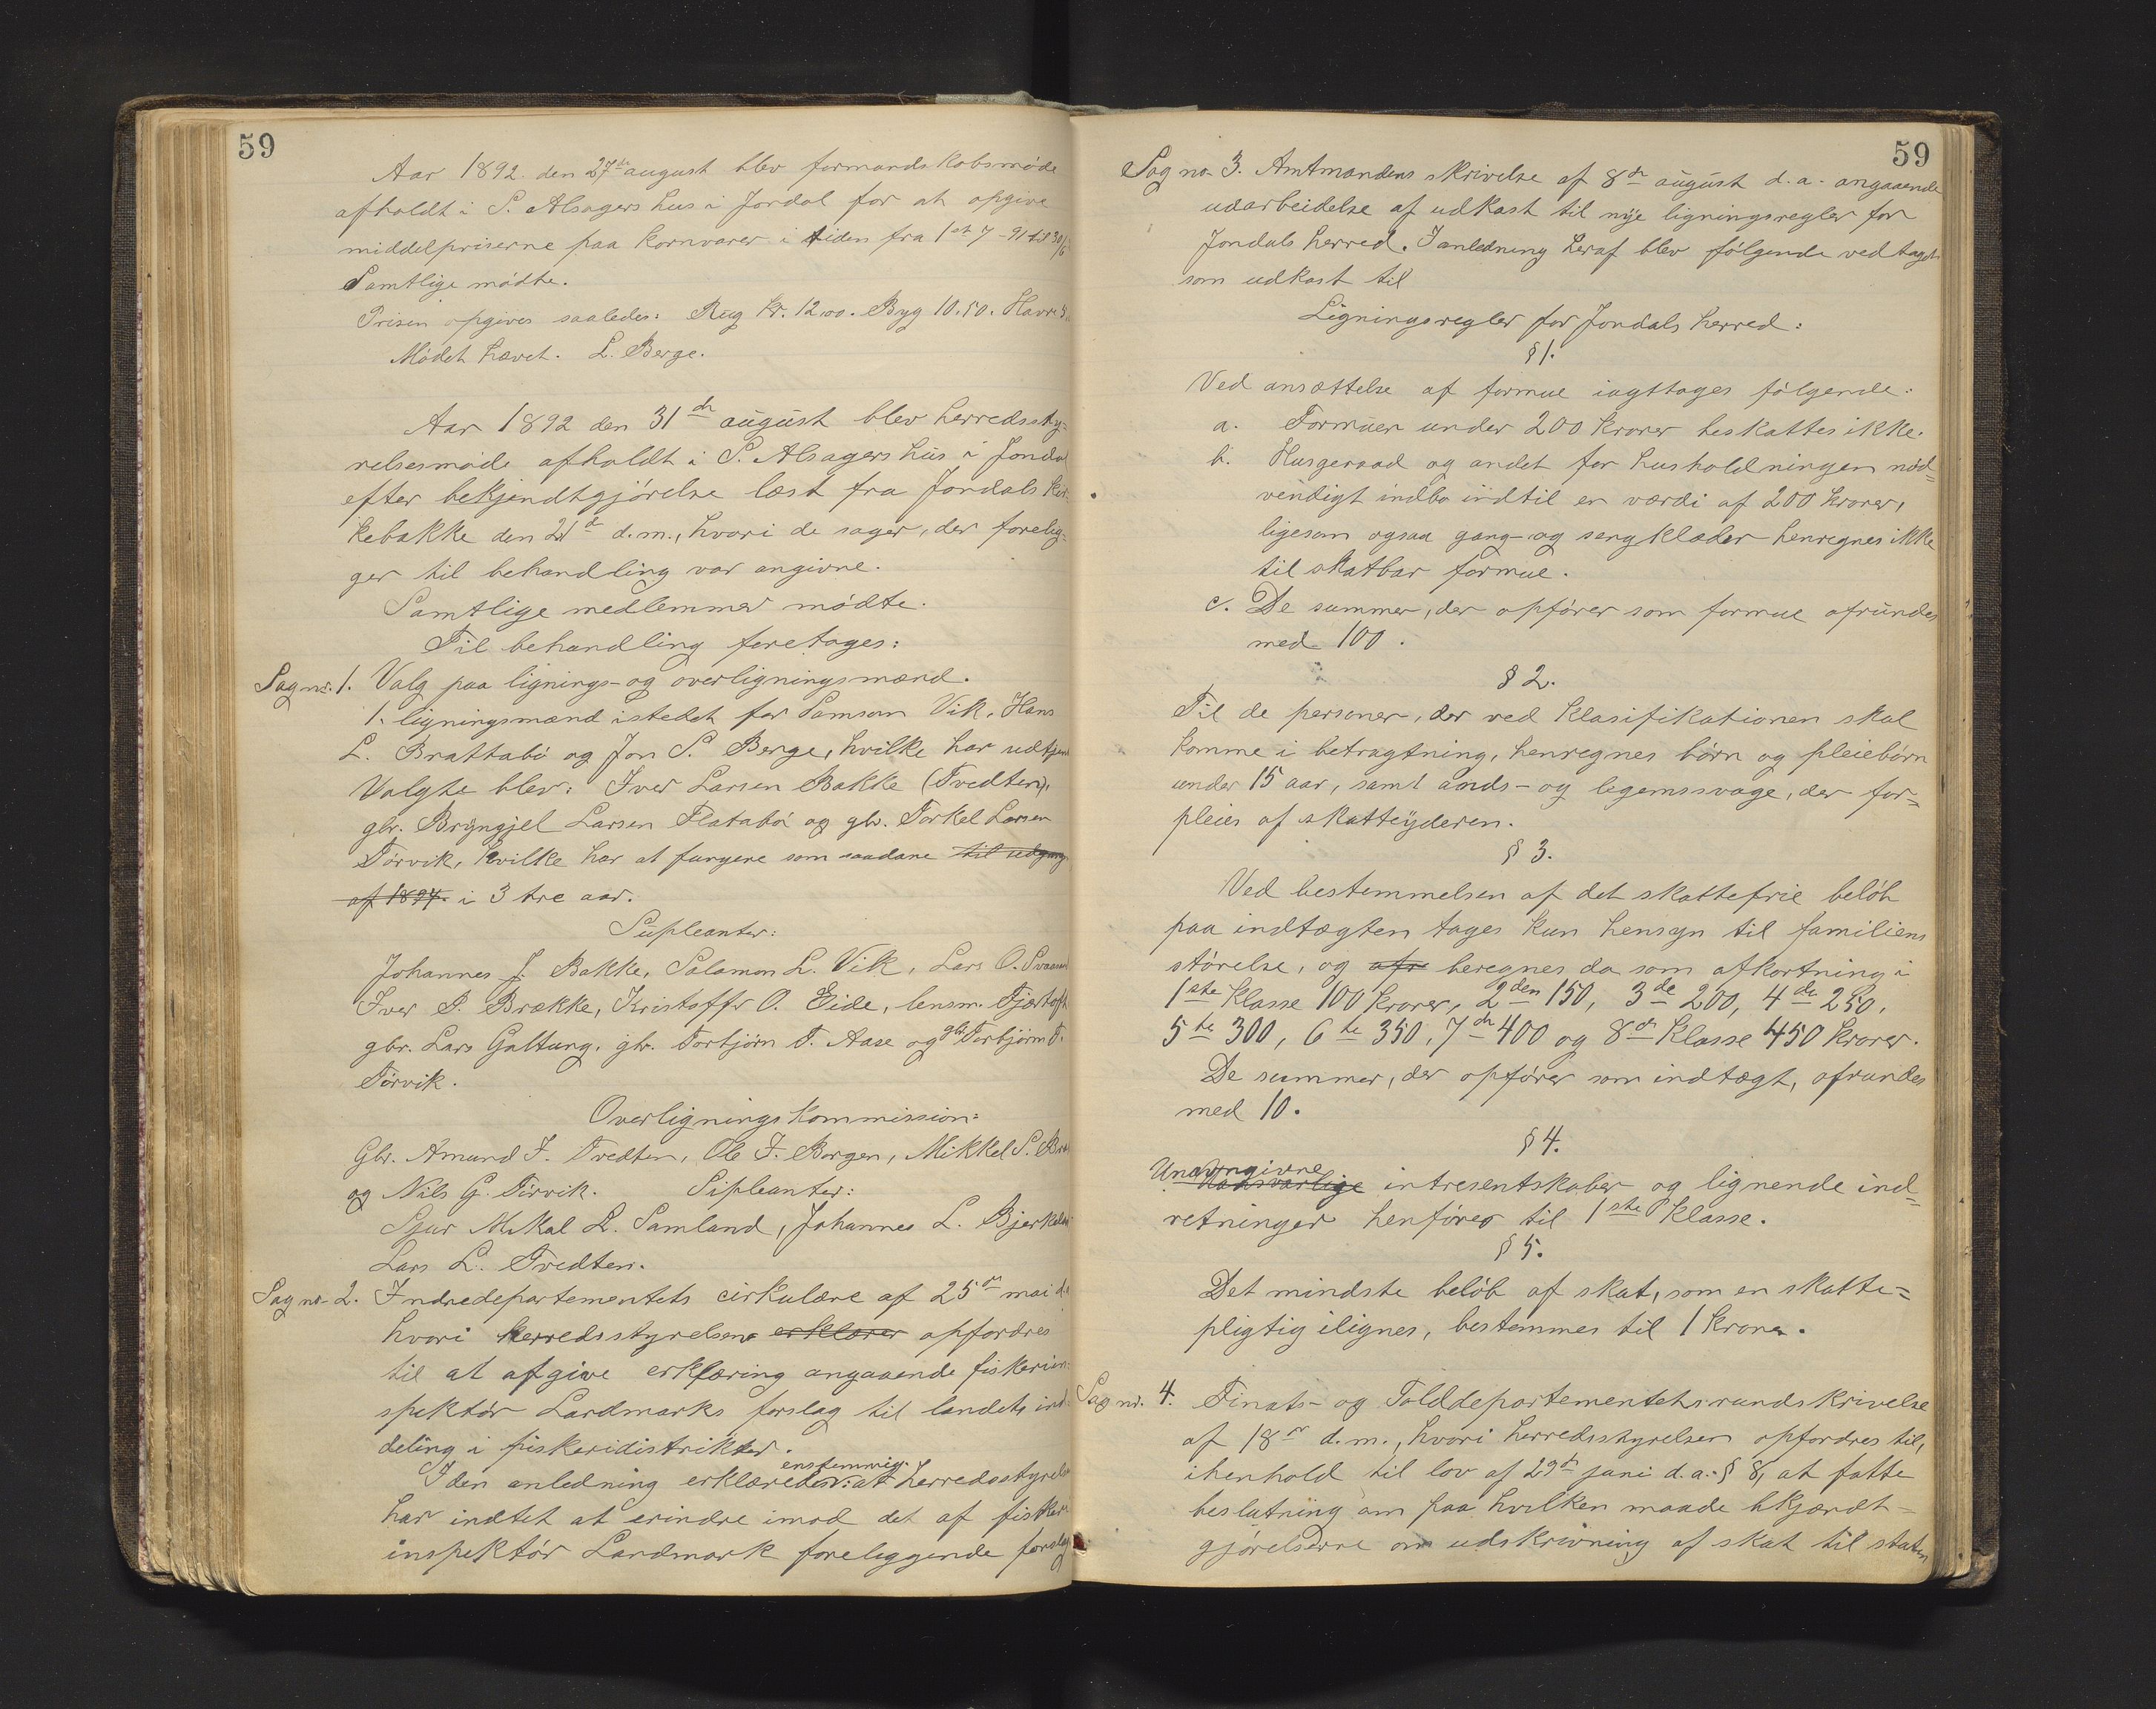 59
Aar 1892 den 27de august blev formandskabsmøde
afholdt i S. Alsagers hus i Jondal for at opgive
middelpriserne paa kornvarer i tiden fra 1ste 7 - 91 til 30/6
Samtlige mødte.
Prisen opgives saaledes: Rug kr. 12,00. Byg 10.50. Havre
Mødet hævet. L. Berge.
Aar 1892 den 31te august blev herredssty-
relsesmøde afholdt i S. Alsagers hus i Jondal
efter bekjendtgjørelse læst fra Jondals kir-
kebakke den 21de d.m., hvori de sager, der forelig-
ger til behandling var angivne.
Samtlige medlemmer mødte.
Til behandling foretages:
Sag nr. 1. Valg paa lignings- og overligningsmænd.
1. ligningsmænd istedet for Samson Vik, Hans
L. Brattabø og Jon S. Berge, hvilke har udtjent
Valgte blev: Iver Larsen Bakke (Tvedten),
gbr. Bryngjel Larsen Flatabø og gbr. Torkel Larsen
Tørvik, hvilke har at fungere som saadane til udgang
af 1894. i 3 tre aar.
Supleanter:
Johannes J. Bakke, Salamon L. Vik, Lars O. Svaasand
Iver P. Brække, Kristoffer O. Eide, lensm. Fjærtoft
gbr. Lars Galtung, gbr. Torbjørn T. Aase og gbr. Torbjørn T.
Tørvik.
Overligningskommission:
Gbr. Amund J. Tvedten, Ole J. Borgen, Mikkel S.
og Nils G. Tørvik. Supleanter:
Sjur Mikal L. Samland, Johannes L. Bjerkeland
Lars L. Tvedten.
Sag no. 2. Indredepartementets cirkulære af 25de mai d.a.
hvori herredsstyrelsene erklærer opfordres
til at afgive erklæring angaaende fiskeriin-
spektør Landmarks forslag til landets ind-
deling i fiskeridistrikter.
enstemmig:
I den anledning erklæredes: at herredsstyrelsen
har indtet at erindre imod det af fiskeri-
inspektør Landmark foreliggende forslag
59
Sag no. 3. Amtmandens skrivelse af 8de august d.a. angaaende
udarbeidelse af udkast til nye ligningsregler for
Jondals herred. I anledning heraf blev følgende vedtaget
som udkast til
Ligningsregler for Jondals herred:
§ 1.
Ved ansættelse af formue iagttages følgende:
a. Formuer under 200 kroner beskattes ikke.
b. Husgeraad og andet for husholdningen nød-
vendigt indbo indtil en værdi af 200 kroner,
ligesom ogsaa gang- og sengklæder henregnes ikke
til skatbar formue.
c. De summer, der opføres som formue afrundes
med 100.
§ 2.
Til de personer, der ved klasifikationen skal
komme i betragtning, henregnes børn og pleiebørn
under 15 aar, samt ands- og legemssvage, der for-
pleies af skatteyderen.
§ 3.
Ved bestemmelsen af det skattefrie beløb
paa indtægten tages kun hensyn til familiens
størelse, og afr beregnes da som afkortning i
1ste klasse 100 kroner, 2den 150, 3de 200, 4de 250,
5te 300, 6te 350, 7de 400 og 8de klasse 450 kroner.
De summer, der opføres som indtægt, afrundes
med 10.
§ 4.
Unavngivne
Uansvarlige intresentskaber og lignende ind-
retninger henføres til 1ste klasse.
§ 5.
Det mindste beløb af skat, som en skatte-
pligtig ilignes, bestemmes til 1 krone.
Sag nr. 4. Finats- og Tolddepartementets rundskrivelse
af 18de d.m., hvori herredsstyrelsen opfordres til,
i henhold til lov af 29de juni d.a. § 8, at fatte
beslutning om paa hvilken maade bkjendt-
gjørelserne om udskrivning af skat til staten